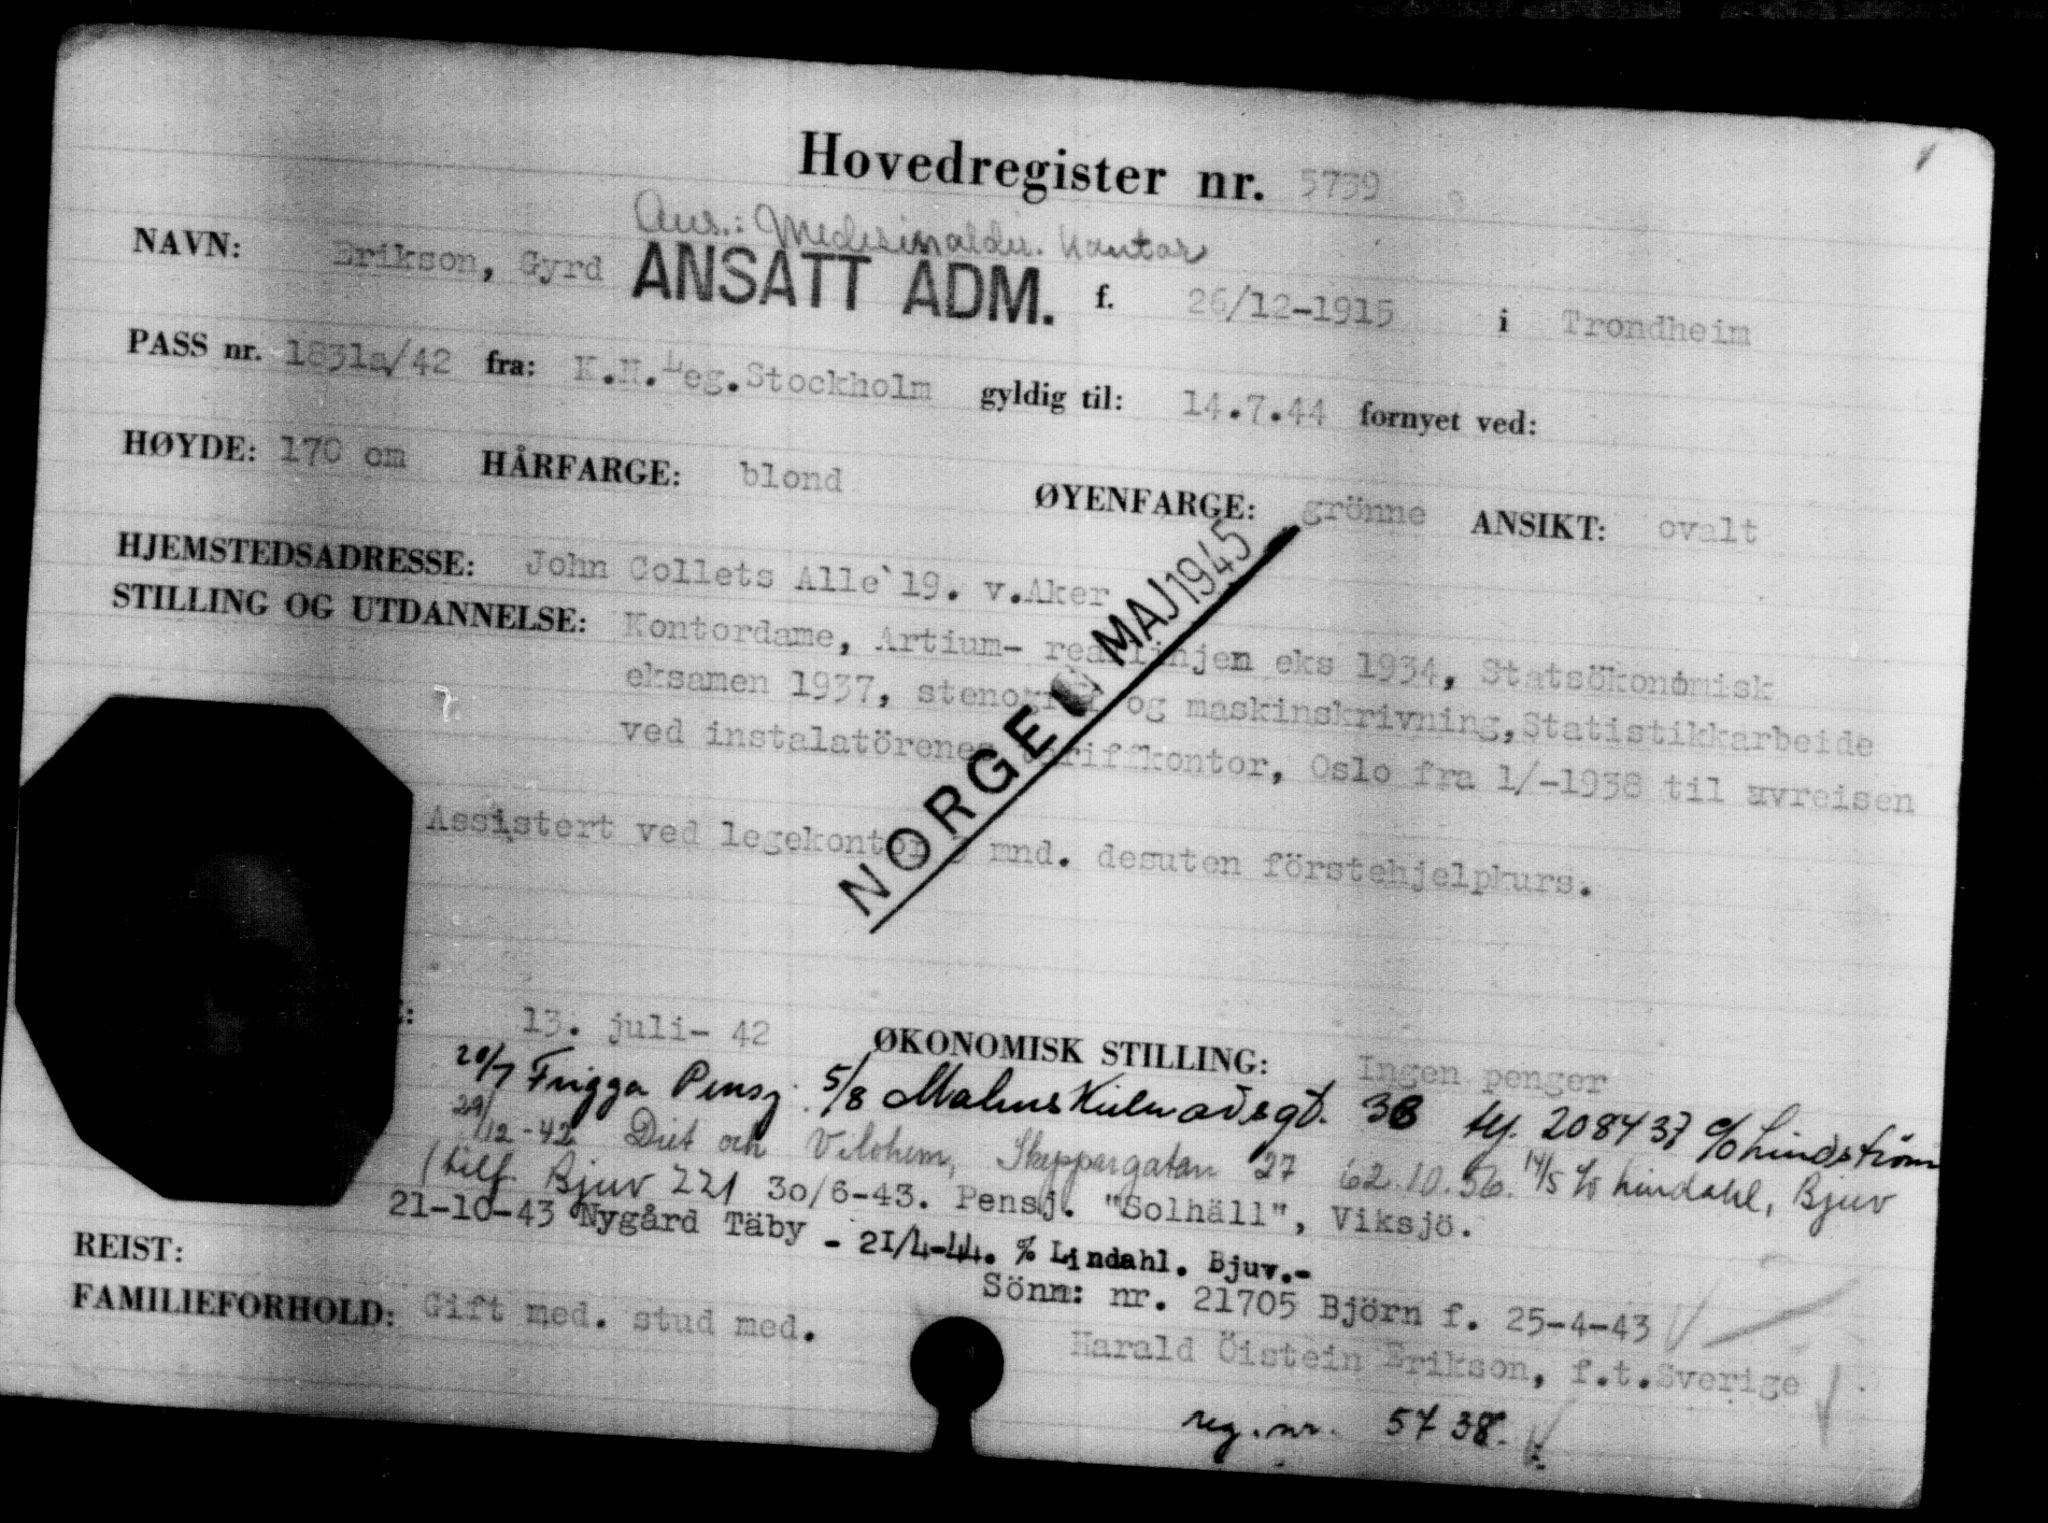 Hovedregister nr. 5739
Ans.: Medisinaldir. kontor
NAVN: Erikson, Gyrd ANSATT ADM. f. 26/12-1915 i Trondheim
PASS nr. 1831a/42 fra: K.N.Leg.Stockholm gyldig til: 14.7.44 fornyet ved:
HØYDE: 170 cm HÅRFARGE: blond ØYENFARGE: grönne ANSIKT: ovalt
HJEMSTEDSADRESSE: John Collets Alle`19. v.Aker
STILLING OG UTDANNELSE: Kontordame, Artium- reallinjen eks 1934, Statsökonomisk
eksamen 1937, stenografi og maskinskrivning,Statistikkarbeide
ved instalatörenes tariffkontor, Oslo fra 1/-1938 til avreisen
Assistert ved legekontor mnd. desuten förstehjelpkurs.
NORGE MAJ 1945
13. juli- 42 ØKONOMISK STILLING: Ingen penger
20/7 Frigga Pensj. 5/8 Malmskilnadsgt. 3B tlf. 208437 c/o Lindström
29/12-42 Diet och Vilohem, Skeppargatan 27 62.10.56. 14/5 c/o Lindahl, Bjuv
(telf. Bjuv 221 30/6-43. Pensj. "Solhäll", Viksjö.
21-10-43 Nygård Täby - 21/4-44. % Lindahl. Bjuv.-
REIST:
Sönn: nr. 21705 Björn f. 25-4-43
FAMILIEFORHOLD: Gift med. stud med.
Harald Öistein Erikson, f.t.Sverige
reg.nr. 5738.